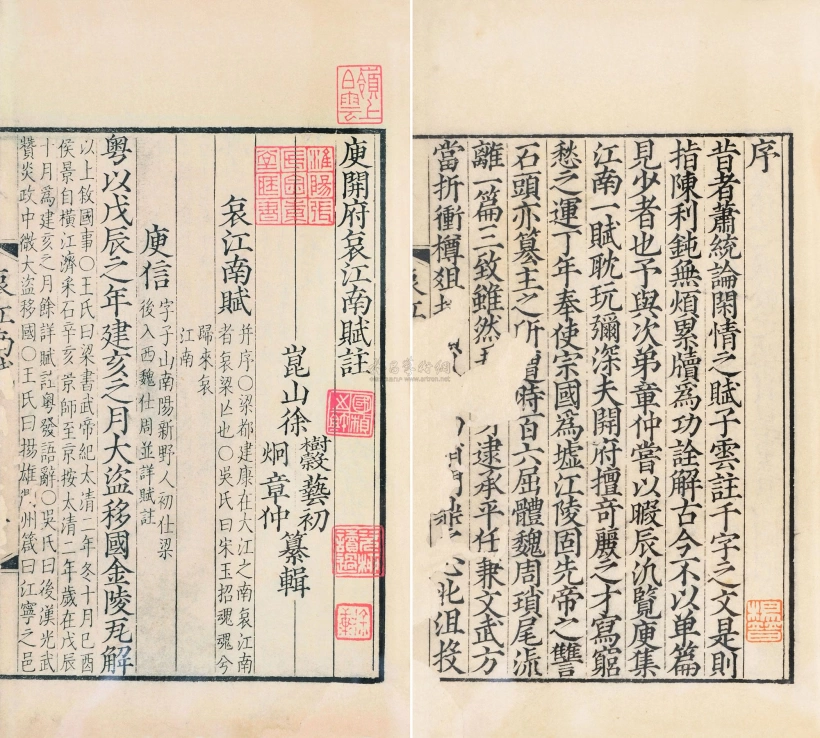 序
昔者蕭統論閑情之賦子雲註千字之文是則
指陳利鈍無煩累牘爲功詮解古今不以单篇
見少者也予與次弟章仲嘗以暇辰汎覽庾集
江南一賦耽玩彌深夫開府擅竒麗之才寫窮
愁之運丁年奉使宗國爲墟江陵固先帝之讐
石頭亦篡主之所
時百六屈體魏周瑣尾流
離一篇三致雖然
逮承平任兼文武方
當折衝樽爼
北沮投
庾開府哀江南賦註
崑山徐
樹榖藝初
炯章仲
纂輯
哀江南賦
并序〇梁都建康在大江之南哀江南
者哀梁亾也〇吳氏曰宋玉招魂魂兮
歸來哀
江南
庾信
字子山南陽新野人初仕梁
後入西魏仕周並詳賦註
粤以戊辰之年建亥之月大盗移國金陵瓦解
以上敘國事〇王氏曰梁書武帝紀太清二年冬十月己酉
侯景自橫江濟采石辛亥景師至京按太清二年歲在戊辰
十月爲建亥之月餘詳賦註粤發語辭〇吳氏曰後漢光武
贊炎政中微大盗移國〇王氏曰揚雄
州箴曰江寧之邑
嶺上白雲